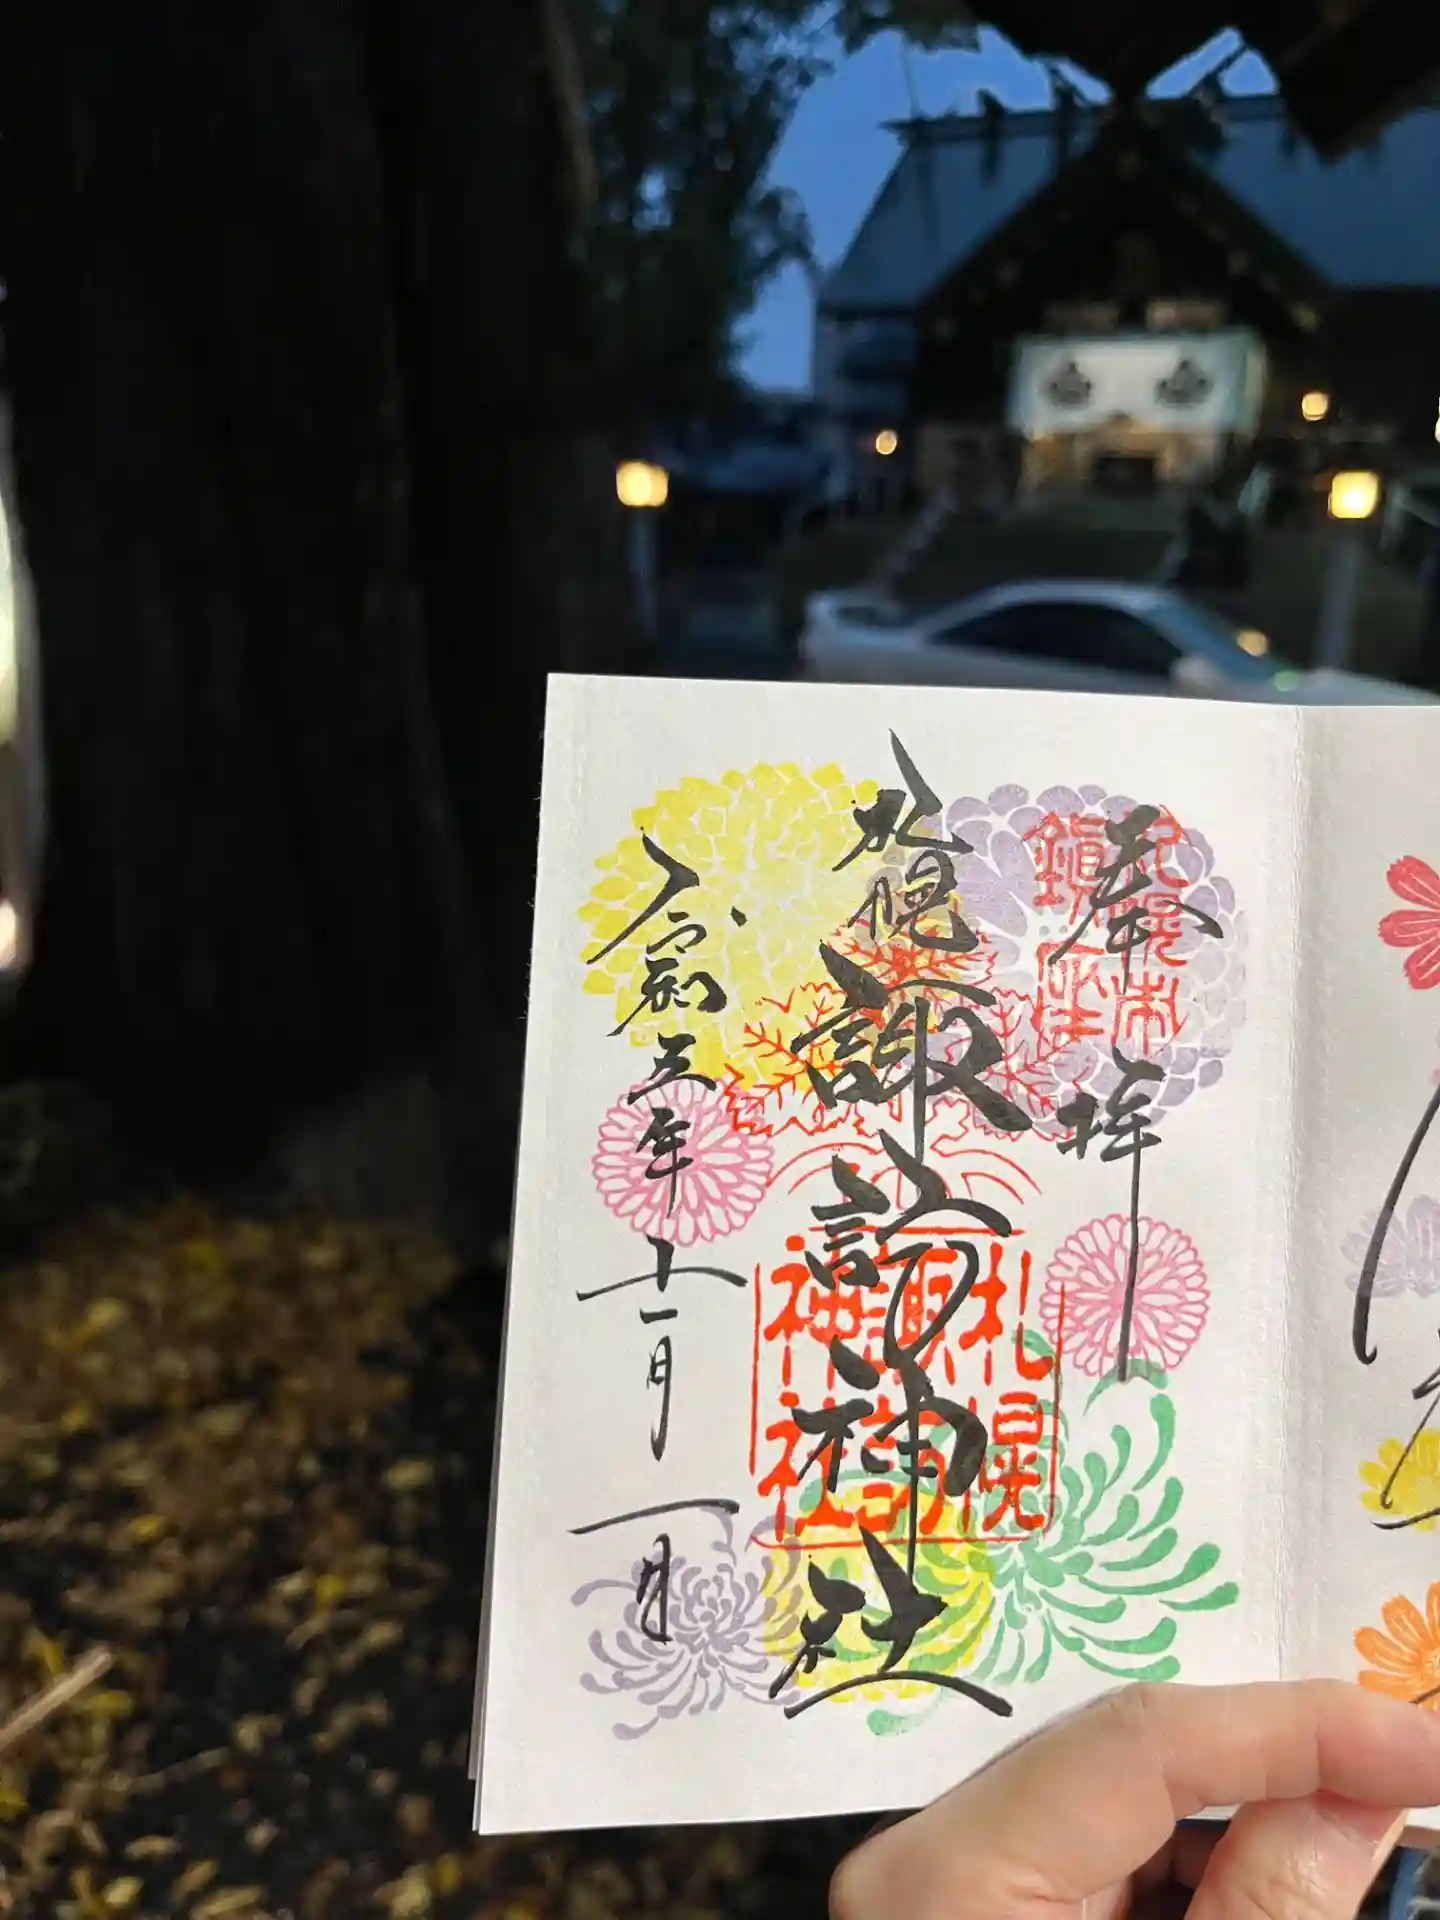 奉拝
札幌市
鎮座
札幌諏訪神社
札幌
諏訪
神社
令和五年十一月一日